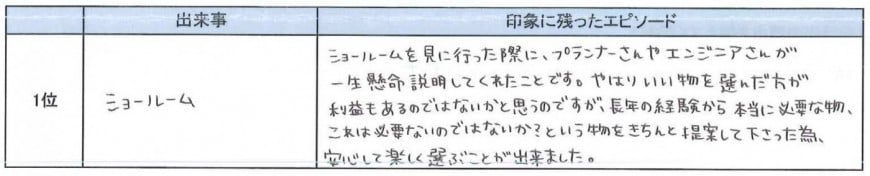 出来事 印象に残ったエピソード
1位 ショールーム
ショールームを見に行った際に、プランナーさんやエンジニアさんが
一生懸命説明してくれたことです。やはりいい物を選んだ方が
利益もあるのではないかと思うのですが、長年の経験から本当に必要な物、
これは必要ないのではないか?という物をきちんと提案して下さった為、
安心して楽しく選ぶことが出来ました。